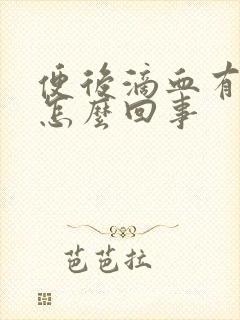 便後滴血有
怎麼回事
芭芭拉